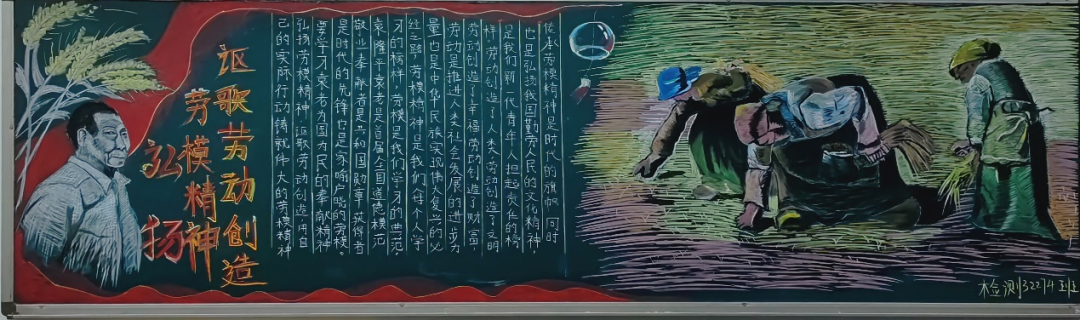 讴歌劳动创造
弘扬
劳模精神
传承劳模精神是时代的旗帜 同时
也是弘扬我国勤劳人民的文化精神，
是我们新一代青年人担起责任的榜
样，劳动创造了人类，劳动创造了文明
劳动创造了幸福劳动创造了财富，
劳动是推进人类社会发展的进步力
量也是中华民族实现伟大复兴的必
经之路，劳模精神是我们每个人学
习的榜样，劳模是我们学习的典范，
袁隆平袁老是首届全国道德模范
敬业奉献者是共和国勋章获得者
是时代的先锋也是家喻户晓的劳模。
要学习袁老为国为民的奉献精神
弘扬劳模精神 讴歌劳动创造用自
己的实际行动铸就伟大的劳模精神
检测3224班